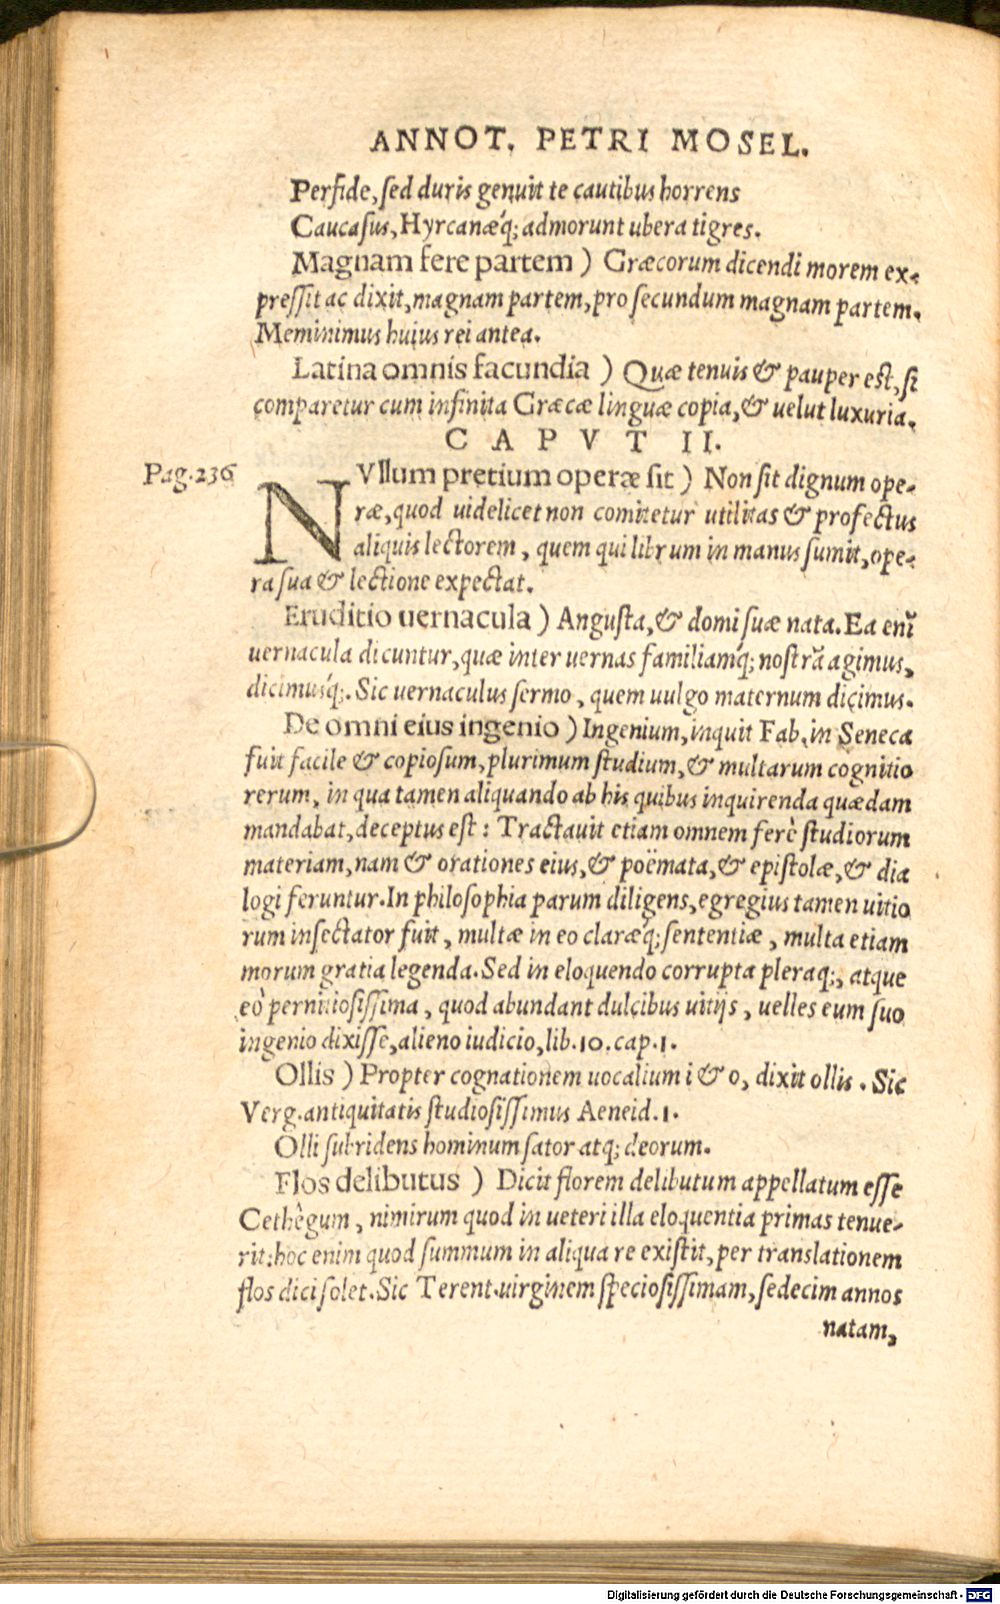 ANNOT. PETRI MOSEL.
Perfide, sed duris genuit te cautibus horrens
Caucasus, Hyrcanæq́; admorunt ubera tigres.
Magnam fere partem ) Græcorum dicendi morem ex-
pressit ac dixit, magnam partem, pro secundum magnam partem.
Meminimus huius rei antea.
Latina omnis facundia ) Quæ tenuis & pauper est, si
comparetur cum infinita Græcæ linguæ copia, & uelut luxuria.
CAPVT II.
Pag. 236
NVllum pretium operæ sit ) Non sit dignum ope-
ræ, quod uidelicet non comitetur utilitas & profectus
aliquis lectorem, quem qui librum in manus sumit, ope-
ra sua & lectione expectat.
Eruditio uernacula ) Angusta, & domi suæ nata. Ea enĩ
uernacula dicuntur, quæ inter uernas familiamq́; nostrã agimus,
dicimusq́;. Sic uernaculus sermo, quem uulgo maternum dicimus.
De omni eius ingenio ) Ingenium, inquit Fab. in Seneca
fuit facile & copiosum, plurimum studium, & multarum cognitio
rerum, in qua tamen aliquando ab his quibus inquirenda quædam
mandabat, deceptus est : Tractauit etiam omnem ferè studiorum
materiam, nam & orationes eius, & poëmata, & epistolæ, & dia
logi feruntur. In philosophia parum diligens, egregius tamen uitio
rum insectator fuit, multæ in eo claræq́; sententiæ, multa etiam
morum gratia legenda. Sed in eloquendo corrupta pleraq;, atque
eò pernitiosissima, quod abundant dulcibus uitijs, uelles eum suo
ingenio dixisse, alieno iudicio, lib. 10. cap. 1.
Ollis ) Propter cognationem uocalium i & o, dixit ollis. Sic
Verg. antiquitatis studiosissimus Aeneid. 1.
Olli subridens hominum sator atq; deorum.
Flos delibutus ) Dicit florem delibutum appellatum esse
Cethêgum, nimirum quod in ueteri illa eloquentia primas tenue-
rit: hoc enim quod summum in aliqua re existit, per translationem
flos dici solet. Sic Terent. uirginem speciosissimam, sedecim annos
natam,
Digitalisierung gefördert durch die Deutsche Forschungsgemeinschaft - DFG